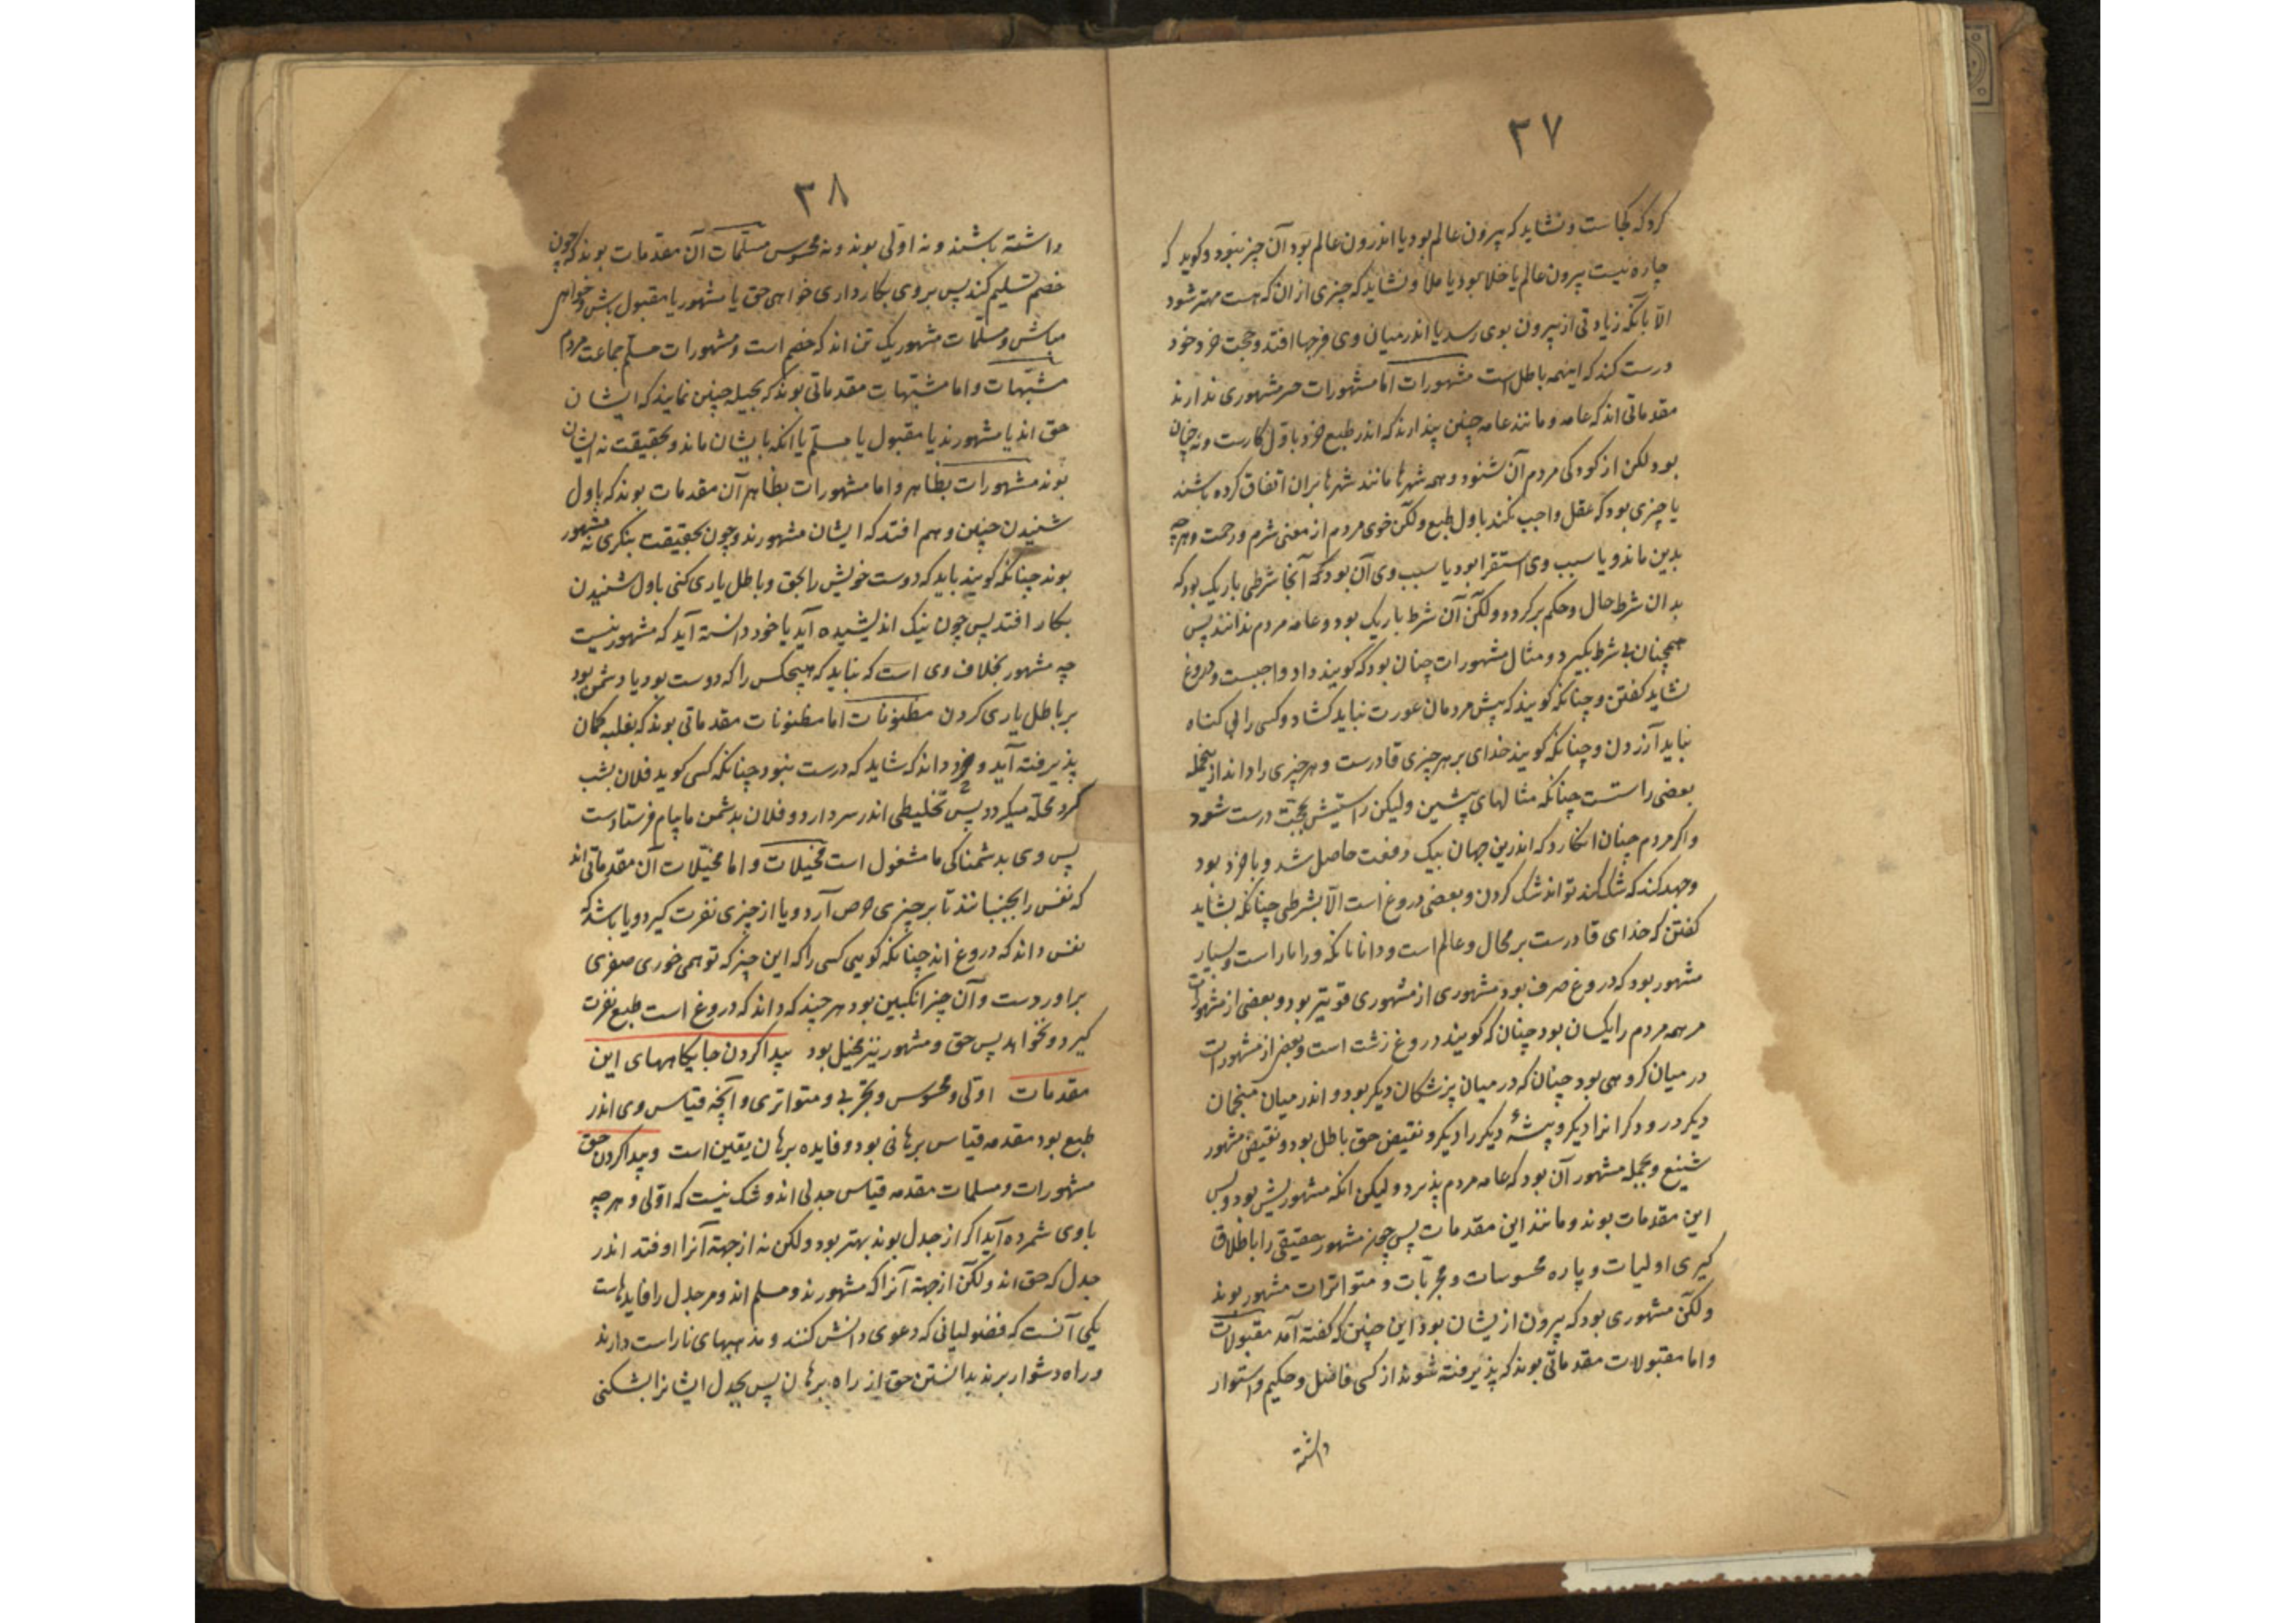 ۳۷
کرد که کجاست و نشاید که بیرون عالم بود یا اندرون عالم بود آن چیز نبود و کوید که
چاره نیست بیرون عالم یا خلا بود یا ملا و نشاید که چیزی از ان که هست مهتر شود
الا بآنکه زیادتی از بیرون بوی رسد یا اندر میان وی فرجها افتد و حجت خرد خود
درست کند که اینهمه باطل است مشهورات اما مشهورات جز مشهوری ندارند
مقدماتی اند که عامه و مانند عامه چنین پندارند که اندر طبع خرد باول کارست و نه چنان
بود لکن از کودکی مردم آن شنود و همه شهرها مانند شهرها بران اتفاق کرده باشند
یا چیزی بود که عقل واجب نکند باول طبع ولکن خوی مردم از معنی شرم و رحمت و هرچه
بدین ماند و یا سبب وی استقرا بود یا سبب وی آن بود که آنجا شرطی باریک بود که
بدان شرط حال و حکم برکردد ولکن آن شرط باریک بود و عامه مردم ندانند پس
همچنان بی شرط بکیرد و مثال مشهورات چنان بود که کویند داد واجبست و دروغ
نشاید کفتن و چنانکه کویند که پیش مردمان عورت نباید کشاد و کسی را بی کناه
نباید آزردن و چنانکه کویند خدای بر هر چیزی قادرست و هر چیزی را داند از ینجمله
بعضی راستست چنانکه مثالهای پیشین ولیکن راستیش بحجت درست شود
واکر مردم چنان انکارد که اندرین جهان بیک دفعت حاصل شد و با خرد بود
وجهد کند که شک کند تواند شک کردن و بعضی دروغ است الا بشرطی چنانکه نشاید
کفتن که خدای قادرست بر محال و عالم است و دانا بانکه ورا یار است و بسیار
مشهور بود که دروغ صرف بود مشهوری از مشهوری قویتر بود و بعضی از مشهورات
مر همه مردم را یکسان بود چنان که کویند دروغ زشت است و بعضی از مشهورات
در میان کروهی بود چنان که در میان پزشکان دیکر بود و اندر میان منجمان
دیکر و درودکرانرا دیکر و پیشهٔ دیکر را دیکر و نقیض حق باطل بود و نقیض مشهور
شنیع و بجمله مشهور آن بود که عامه مردم پذیرد ولیکن انکه مشهوریش بود و بس
این مقدمات بوند و مانند این مقدمات پس چون مشهور حقیقی را باطلاق
کیری اولیات و پاره محسوسات و مجربات و متواترات مشهور بوند
ولکن مشهوری بود که بیرون ازیشان بود این چنین که کفته آمد مقبولات
واما مقبولات مقدماتی بوند که پذیرفته شوند از کسی فاضل و حکیم و استوار
داشته
۳۸
داشته باشند و نه اولی بوند و نه محسوس مسلمات آن مقدمات بوند که چون
خصم تسلیم کند پس بر وی بکار داری خواهی حق یا مشهور یا مقبول باش و خواهی
مباش و مسلمات مشهور یک تن اند که خصم است و مشهورات مسلم جماعت مردم
مشبهات واما مشبهات مقدماتی بوند که بحیله چنین نمایند که ایشان
حق اند یا مشهورند یا مقبول یا مسلم یا انکه بایشان ماند و بحقیقت نه ایشان
بوند مشهورات بظاهر واما مشهورات بظاهر آن مقدمات بوند که باول
شنیدن چنین وهم افتد که ایشان مشهورند و چون بحقیقت بنکری نه مشهور
بوند چنانکه کویند باید که دوست خویش را بحق و باطل یاری کنی باول شنیدن
بکار افتد پس چون نیک اندیشیده آید یا خود دانسته آید که مشهور نیست
چه مشهور بخلاف وی است که نباید که هیچکس را که دوست بود یا دشمن بود
بر باطل یاری کردن مظنونات اما مظنونات مقدماتی بوند که بغلبه کمان
پذیرفته آید و خرد داند که شاید که درست نبود چنانکه کسی کوید فلان بشب
کرد محلة میکردد پس تخلیطی اندر سر دارد و فلان بدشمن ما پیام فرستادست
پس وی بدشمناکی ما مشغول است مخیلات واما مخیلات آن مقدماتی اند
که نفس را بجنبانند تا بر چیزی حرص آرد و یا از چیزی نفرت کیرد و یا باشد که
نفس داند که دروغ اند چنانکه کویی کسی را که این چیز که تو همی خوری صفری
براوردست و آن چیز انکبین بود هر چند که داند که دروغ است طبع نفرت
کیرد و نخواهد پس حق و مشهور نیز مخیل بود پیدا کردن جایکاههای این
مقدمات اولی و محسوس و تجربی و متواتری و آنچه قیاس وی اندر
طبع بود مقدمه قیاس برهانی بود و فایده برهان یقین است و پیدا کردن حق
مشهورات و مسلمات مقدمه قیاس جدلی اند و شک نیست که اولی و هر چه
با وی شمرده آید اکر از جدل بوند بهتر بود ولکن نه از جهة آنرا اوفتد اندر
جدل که حق اند ولکن از جهة آنرا که مشهورند و مسلم اند و مر جدل را فایدهاست
یکی آنست که فضولیانی که دعوی دانش کنند و مذهبهای ناراست دارند
و راه دشوار برند بدانستن حق از راه برهان پس بجدل ایشانرا بشکنی